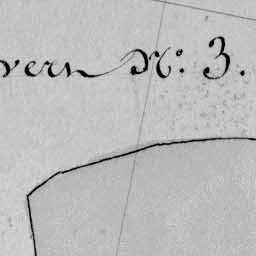 vern No: 3.